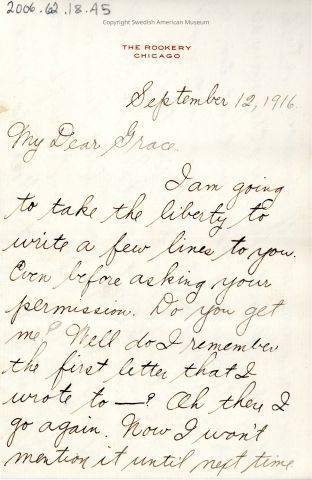 2006.62.18.45
Copyright Swedish American Museum
THE ROOKERY
CHICAGO
September 12, 1916.
My Dear Grace.
I am going
to take the liberty to
write a few lines to you.
Even before asking your
permission. Do you get
me? Well do I remember
the first letter that I
wrote to —? Oh there I
go again. Now I won't
mention it until next time